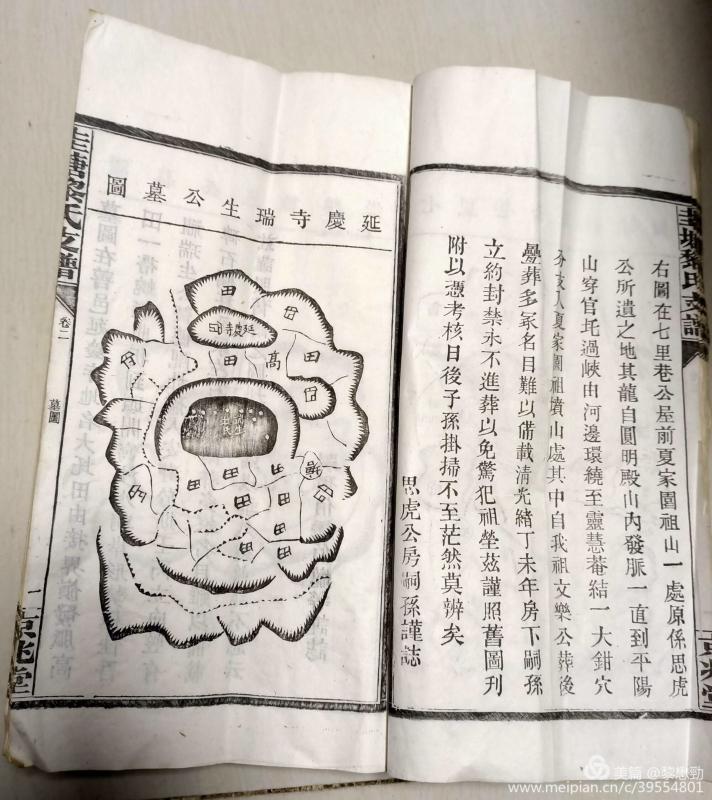 右圖在七里巷公屋前夏家園祖山一處原係思虎
公所遺之地其龍自圓明殿山內發脈一直到平陽
山穿官圫過峽由河邊環繞至靈慧菴結一大鉗穴
夏家園祖墳山處其中自我祖文樂公葬後
疊葬多冢名目難以備載清光緒丁未年房下嗣孫
立約封禁永不進葬以免驚犯祖塋茲謹照舊圖刊
附以憑考核日後子孫掛掃不至茫然莫辨矣
思虎公房嗣孫謹誌
京兆堂
延慶寺瑞生公墓圖
延慶寺
田
田
高
田
田
田
田
田
田
田
黎氏支譜
卷二
墓圖
一
京兆堂
美篇 @黎懋勁
www.meipian.cn/c/39554801